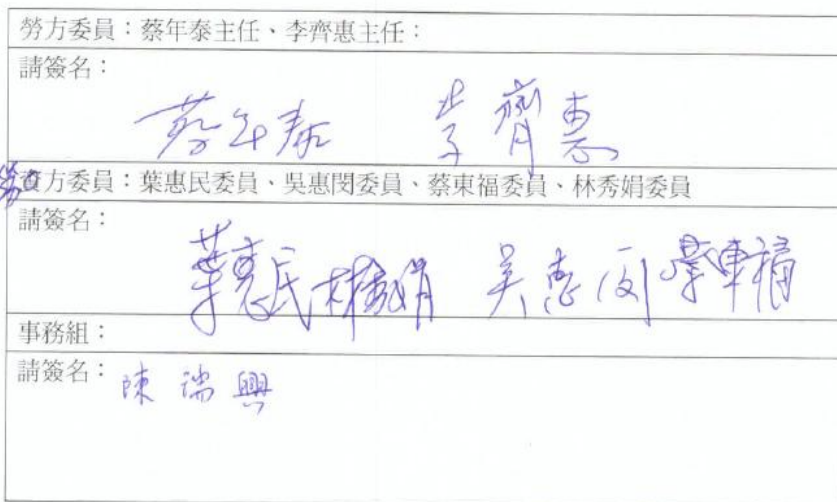 勞方委員：蔡年泰主任、李齊惠主任：
請簽名：
蔡年泰 李齊惠
勞資方委員：葉惠民委員、吳惠閔委員、蔡東福委員、林秀娟委員
請簽名：
葉惠民 林秀娟 吳惠閔 蔡東福
事務組：
請簽名：陳瑞興